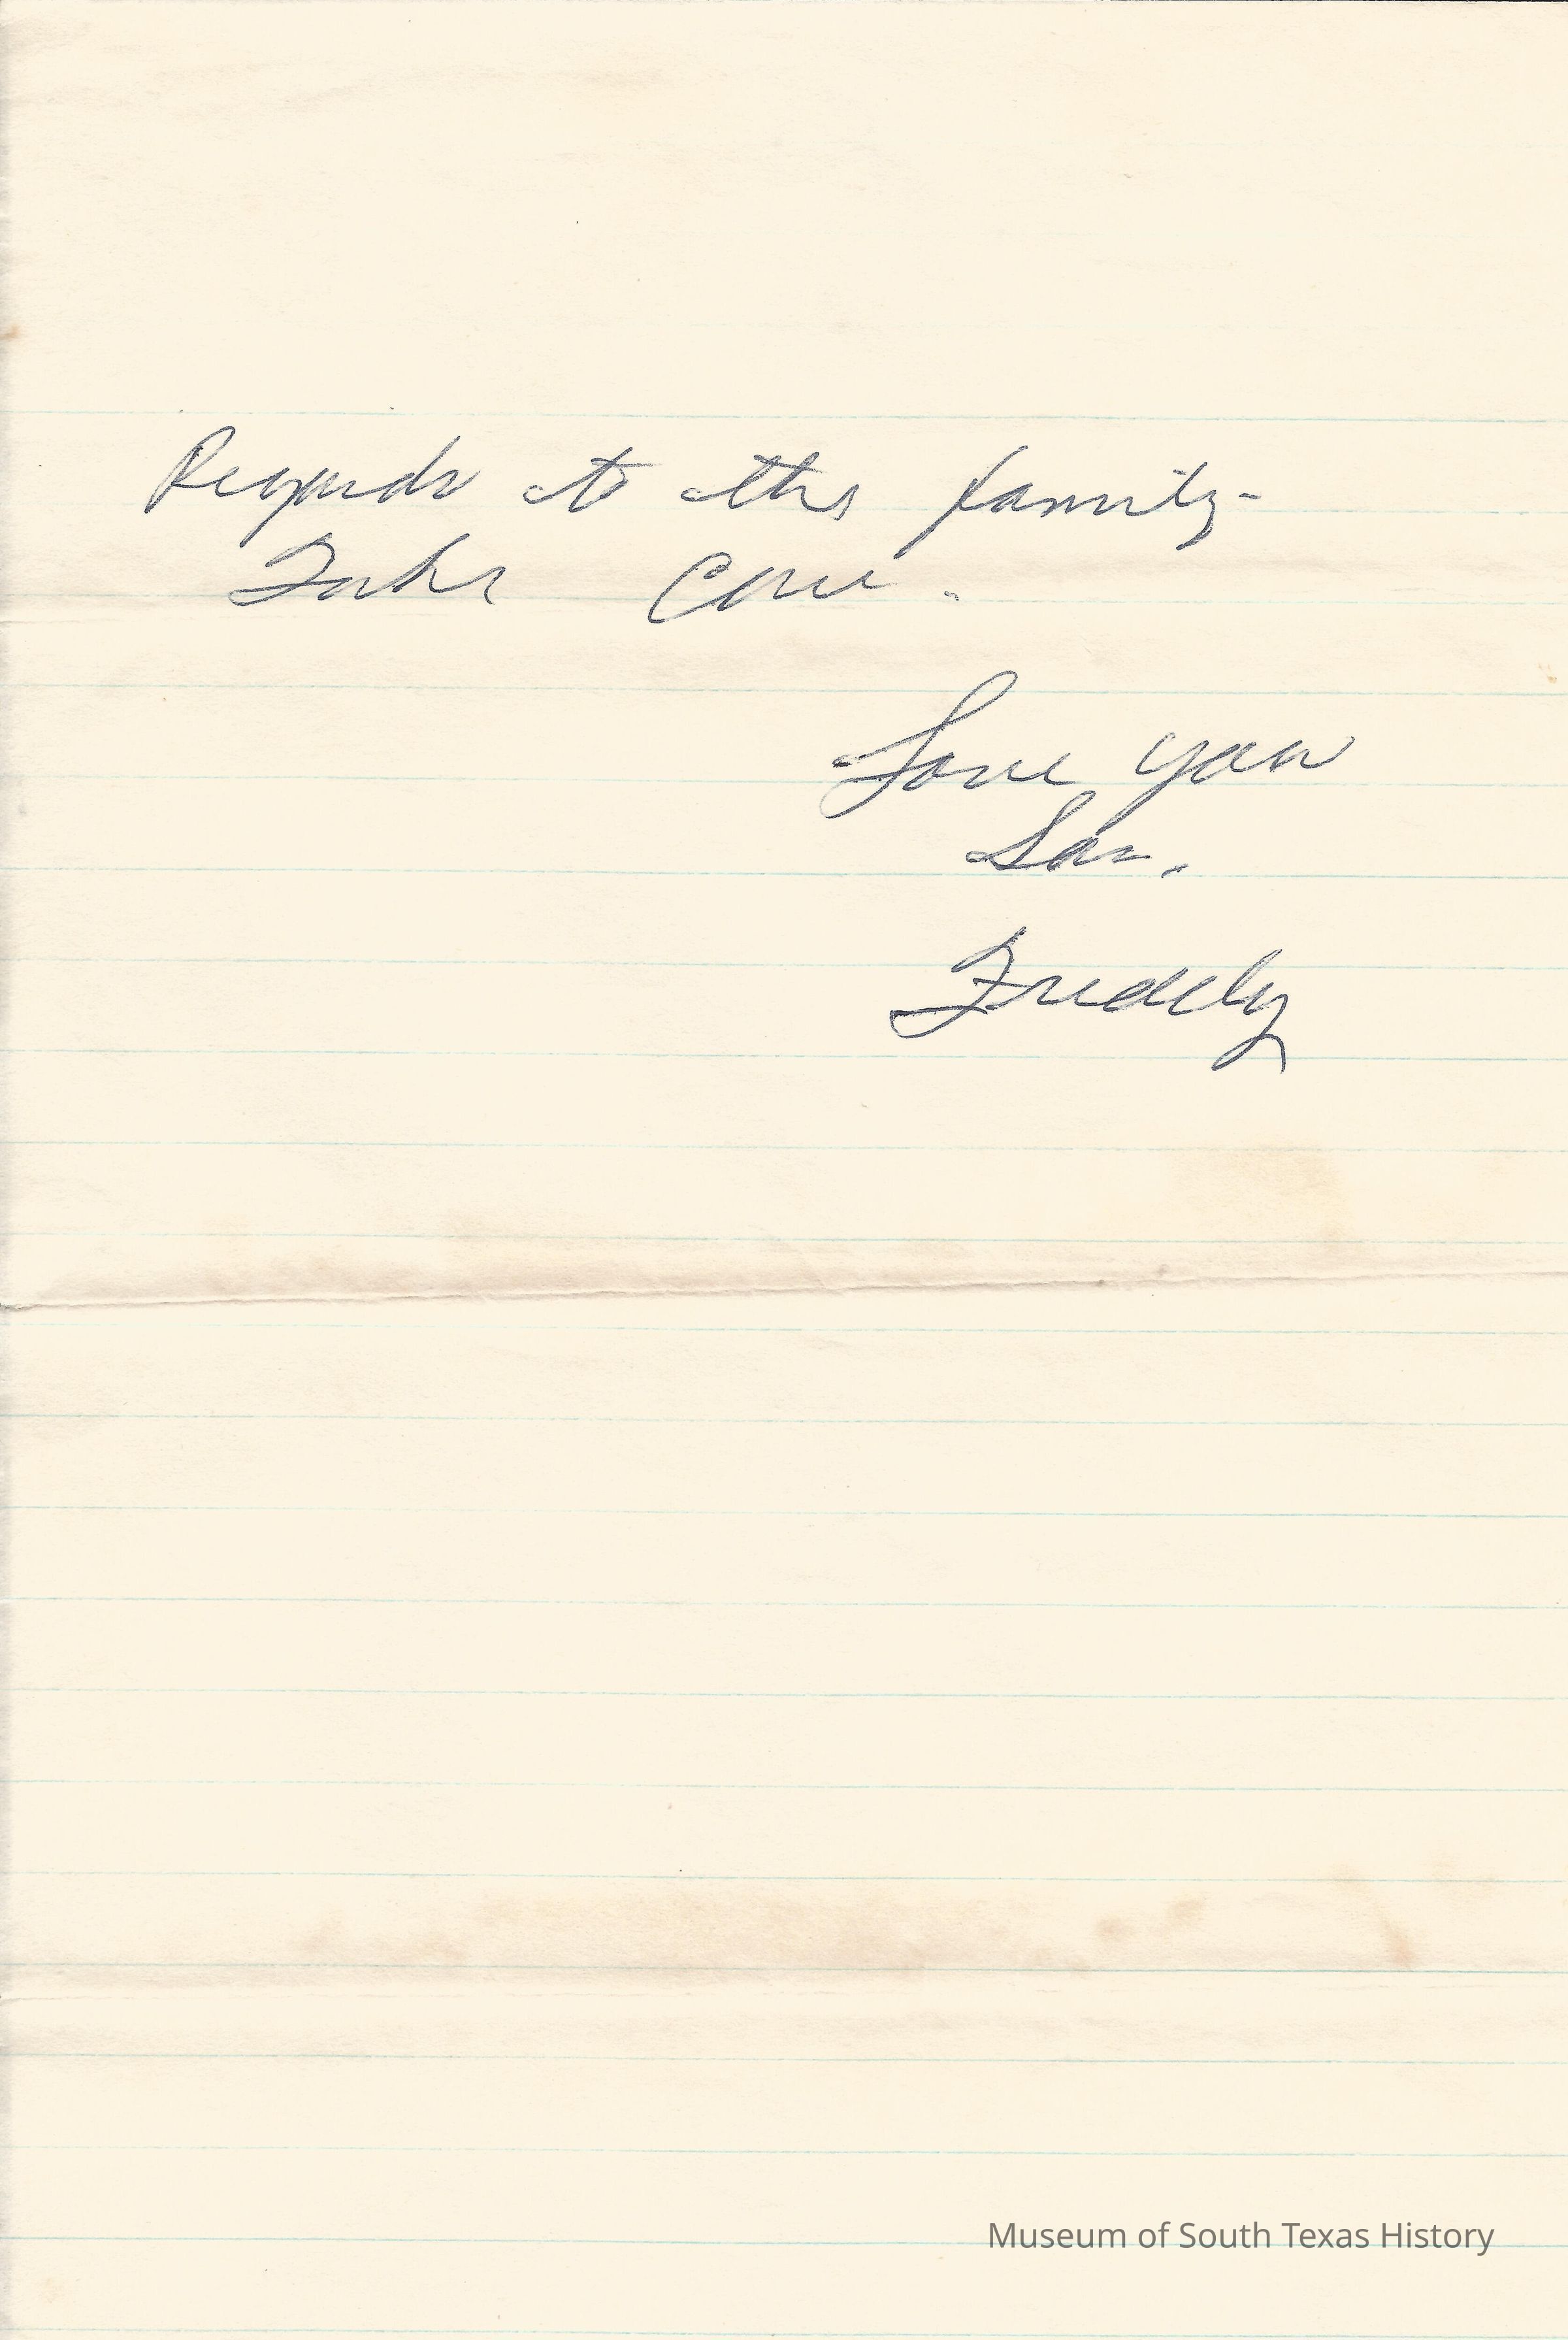 Regards to the family -
Take Care.
Love your
Son.
Freddy
Museum of South Texas History